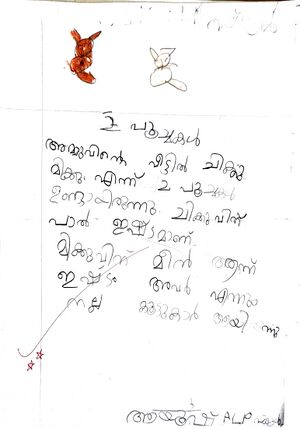 2 പൂച്ചകൾ
അമ്മുവിന്റെ വീട്ടിൽ ചിക്കു
മിക്കു എന്ന് 2 പൂച്ചകൾ
ഉണ്ടായിരുന്നു ചിക്കുവിന്
പാൽ ഇഷ്ടമാണ്.
മിക്കുവിന് മീൻ ആണ്
ഇഷ്ടം അവർ എന്നും
നല്ല കൂട്ടുകാർ ആയി
ALP